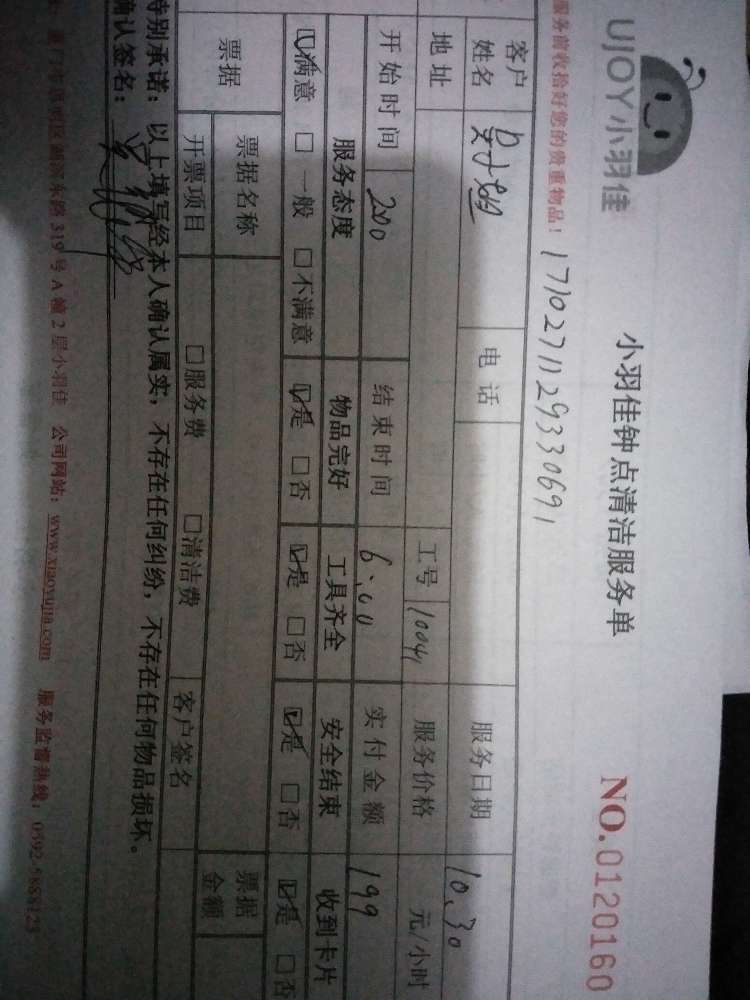 UJOY小羽佳
小羽佳钟点清洁服务单
NO.0120160
服务前收拾好您的贵重物品！
1710271129330691
客户姓名 电话 服务日期 10.30
地址 工号 10041 服务价格 元/小时
开始时间 2:00 结束时间 6:00 实付金额 199
服务态度 物品完好 工具齐全 安全结束 收到卡片
☑满意 □一般 □不满意 ☑是 □否 ☑是 □否 ☑是 □否 ☑是 □否
票据 票据名称 票据金额
开票项目 □服务费 □清洁费 客户签名
特别承诺：以上填写经本人确认属实，不存在任何纠纷，不存在任何物品损坏。
确认签名：
湖滨东路319号A幢2层小羽佳 公司网站：www.xiaoyujia.com 服务监督热线：0592-5888123